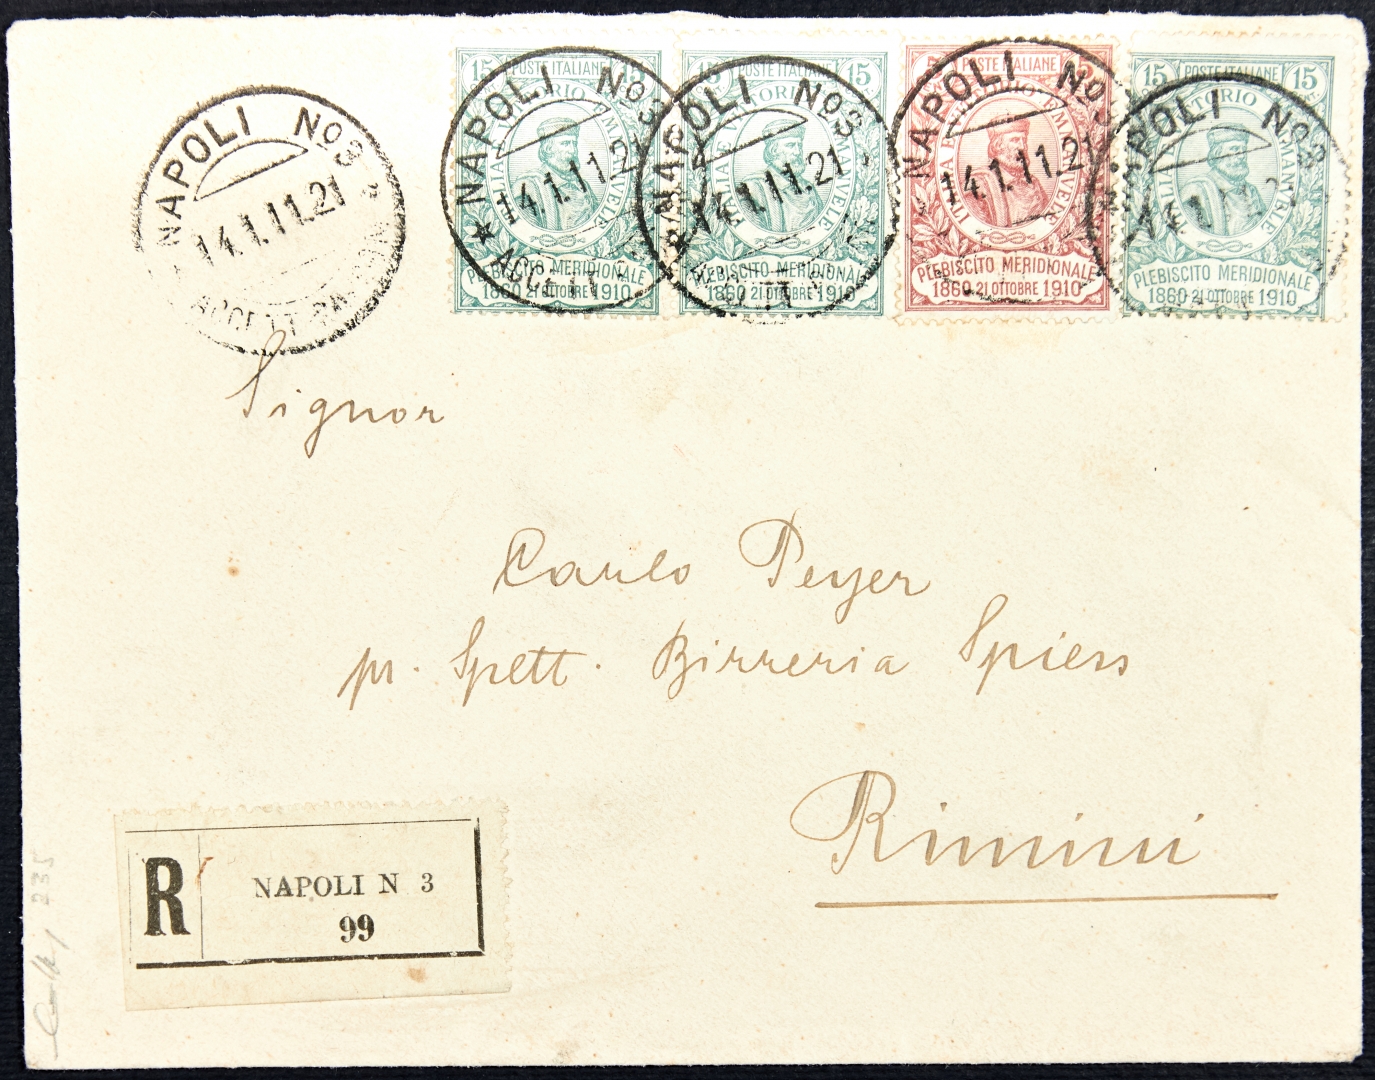 NAPOLI No3
14.1.11.21
15 POSTE ITALIANE 15
PLEBISCITO MERIDIONALE
1860 21 OTTOBRE 1910
NAPOLI No3
14.1.11.21
15 POSTE ITALIANE 15
PLEBISCITO MERIDIONALE
1860 21 OTTOBRE 1910
NAPOLI No3
14.1.11.21
5 POSTE ITALIANE
ITALIA E VITTORIO EMANUELE
PLEBISCITO MERIDIONALE
1860 21 OTTOBRE 1910
NAPOLI No
14.1.11.21
15 POSTE ITALIANE 15
PLEBISCITO MERIDIONALE
1860 21 OTTOBRE 1910
NAPOLI No3
Signor
Carlo Peyer
pr. Spett. Birreria Spiess
Rimini
R NAPOLI N 3
99
235